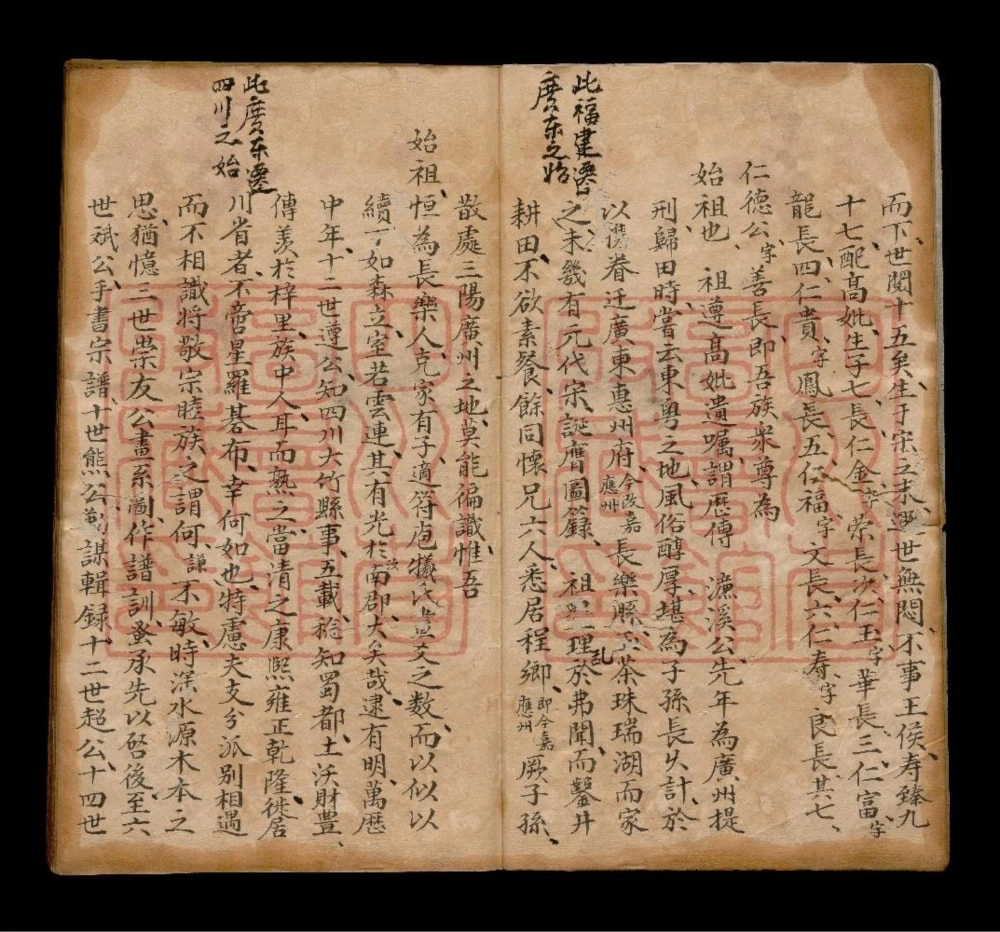 而下、世閱十五矣、生于宋之末、遯世無悶、不事王侯、寿臻九
十七、配高妣、生子七、長仁金、字荣長、次仁玉、字華長、三仁富、字
龍長、四仁貴、字鳳長、五仁福、字文長、六仁寿、字良長、其七、
仁德公、字善長、即吾族衆尊為
始祖也、祖遵高妣遺嘱、謂歷傳濂溪公、先年為廣州提
刑、歸田時、嘗云東粤之地、風俗醇厚、堪為子孫長久計、於
此福建遷廣东之始
以携眷迁廣東惠州府、今改嘉應州長樂縣、茶珠瑞湖而家
之、未幾有元代宋、誕膺圖籙、祖乱理於弗聞、而鑿井
耕田、不欲素餐、餘同懷兄六人、悉居程鄉、即今嘉應州厥子孫、
散處三陽廣州之地、莫能偏識、惟吾
始祖、恒為長樂人、克家有子、適符庖犧氏畫爻之数、而以似以
續、丁如森立、室若雲連、其有光於南郡、大矣哉、逮有明、萬歷
中年、十二世遵公、知四川大竹縣事、五載、稔知蜀都、土沃財豊、
傳羡於梓里、族中人、耳而熟之、當清之康熙雍正乾隆、徙居
此廣东遷四川之始
川省者、不啻星羅碁布、幸何如也、特慮夫支分派別、相遇
而不相識、将敬宗睦族之謂何、謙不敏、時深水源木本之
思、猶憶三世崇友公、畫系圖、作譜訓、蚤承先以啓後、至六
世斌公、手書宗譜、十世熊公、謀輯録、十二世超公、十四世